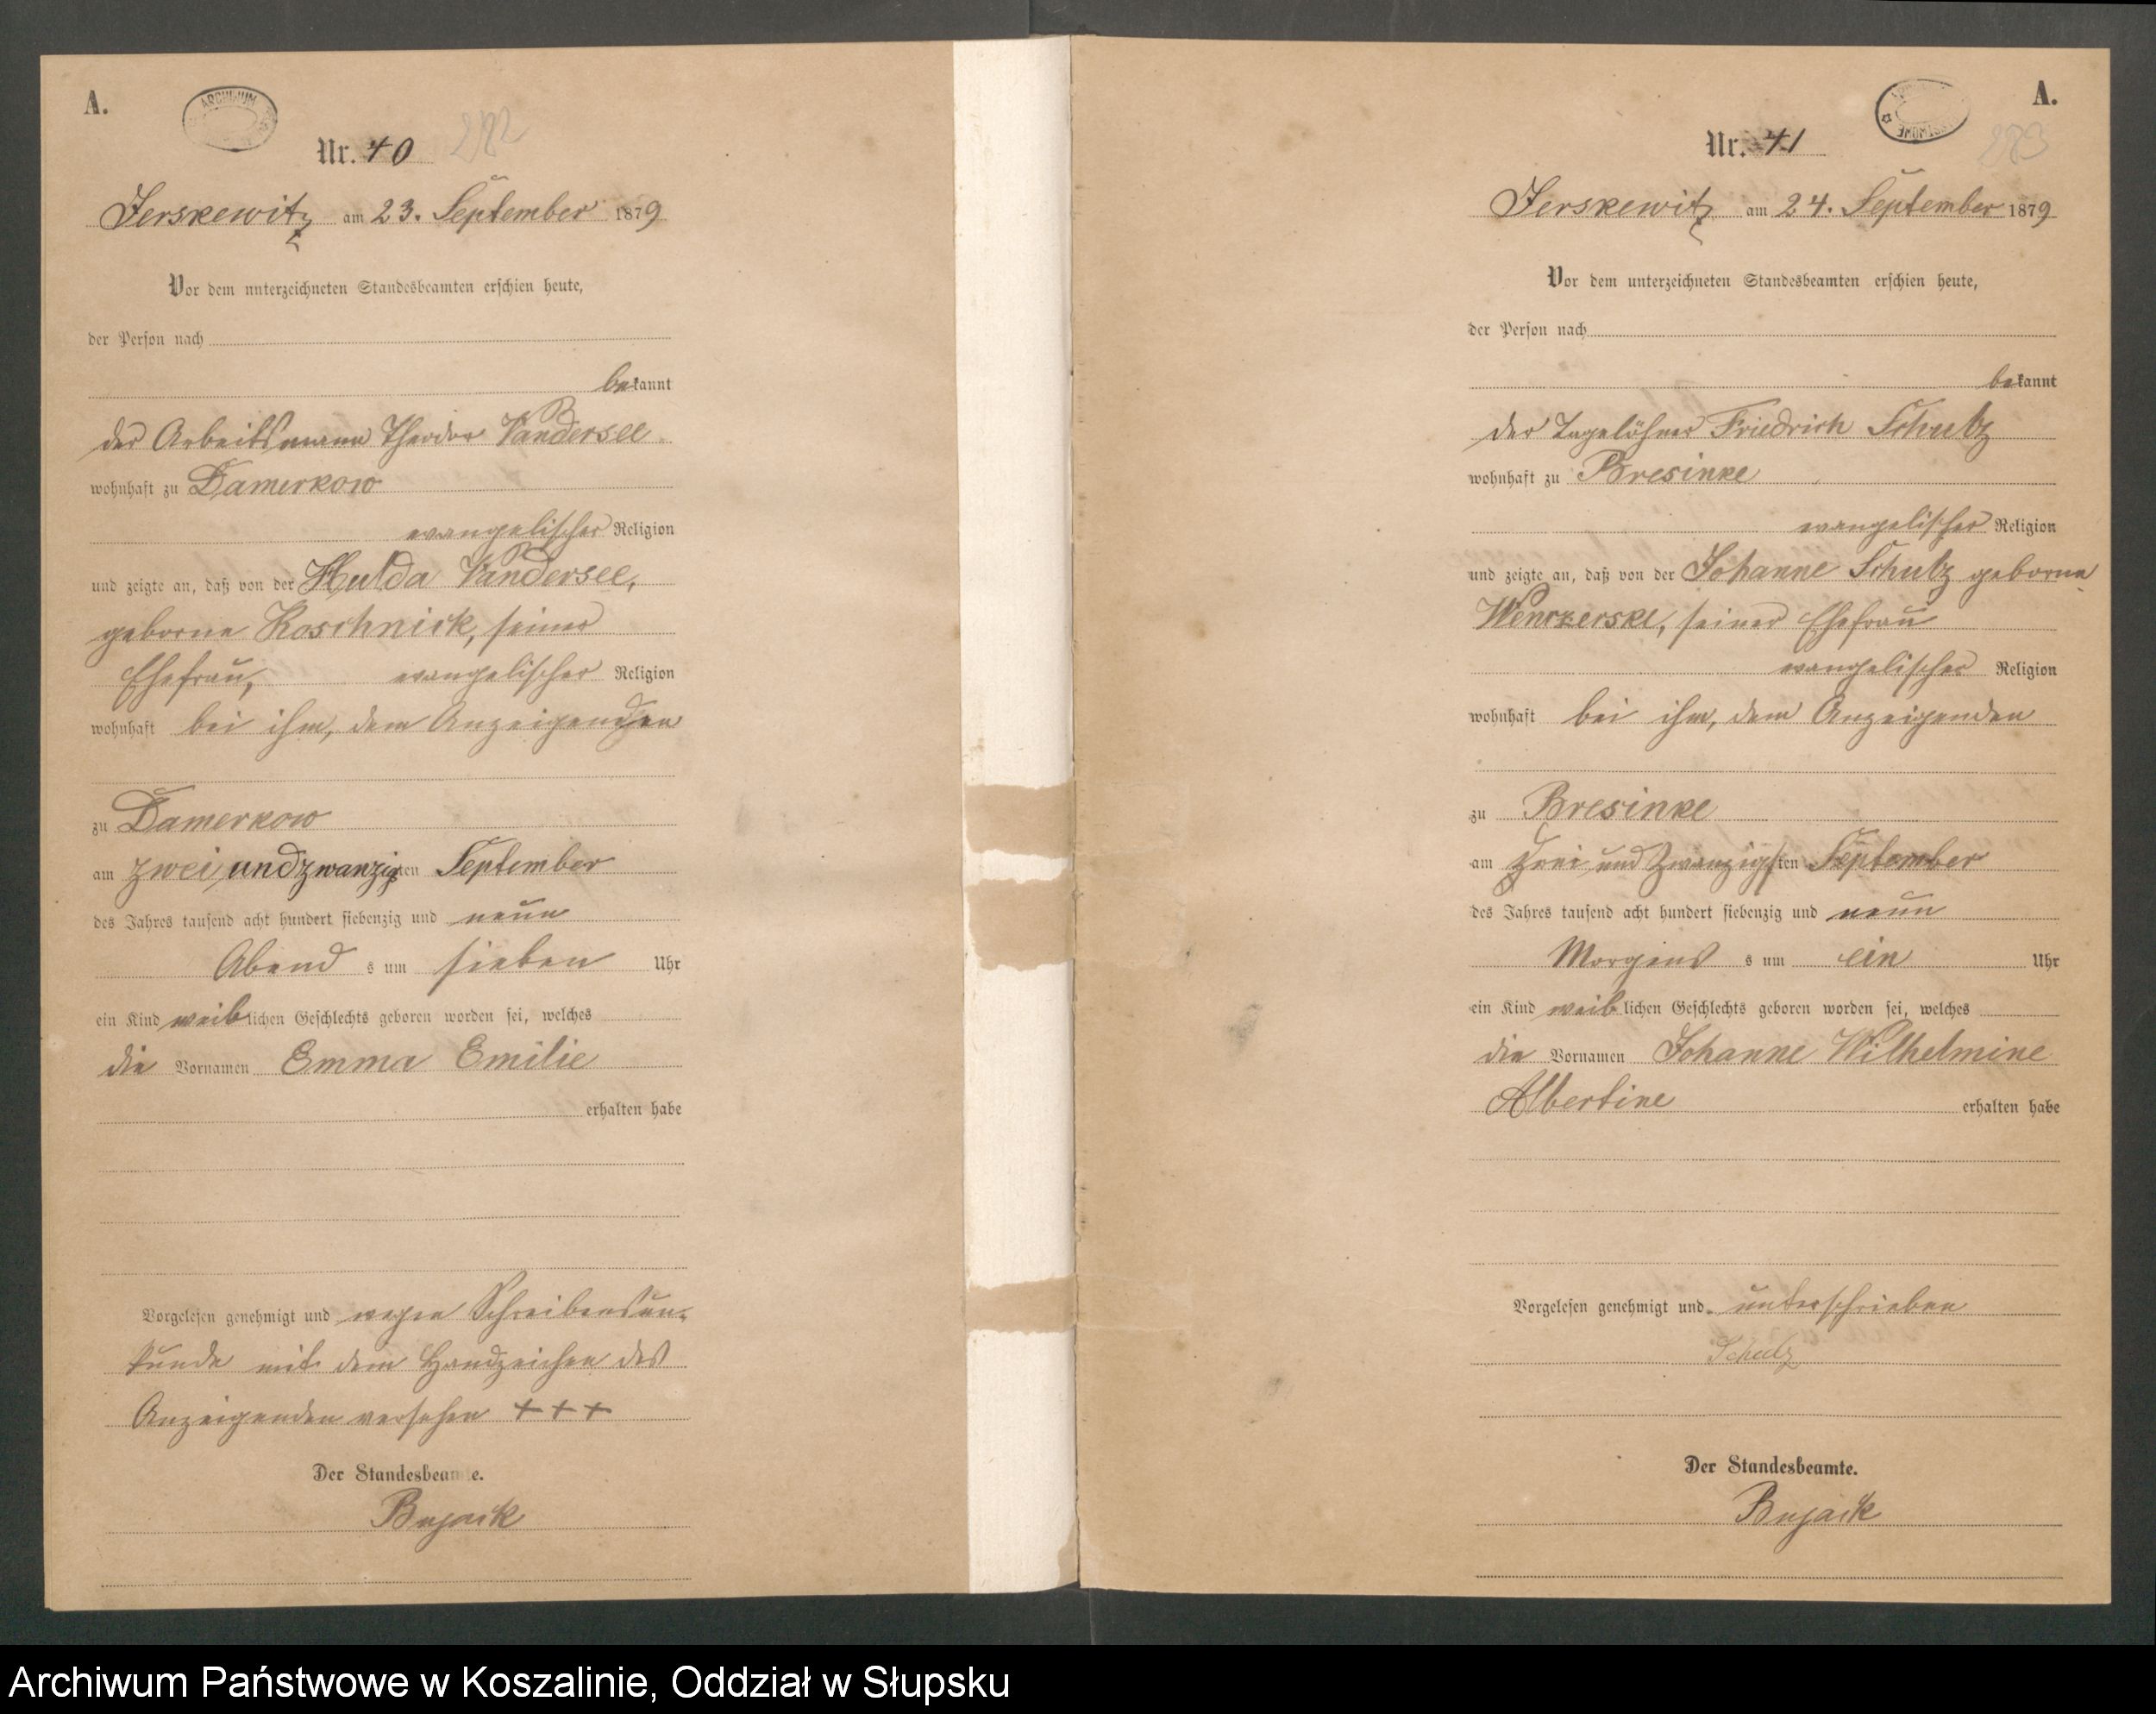 A.
ARCHIWUM
Nr. 40 282
Jerskewitz am 23. September 1879
Vor dem unterzeichneten Standesbeamten erschien heute,
der Person nach
bekannt
der Arbeitsmann Theodor Vandersee
wohnhaft zu Damerkow
evangelischer Religion
und zeigte an, daß von der Hulda Vandersee,
geborne Koschnick, seiner
Ehefrau, evangelischer Religion
wohnhaft bei ihm, dem Anzeigenden
zu Damerkow
am zwei und zwanzigsten September
des Jahres tausend acht hundert siebenzig und neun
Abend s um sieben Uhr
ein Kind weiblichen Geschlechts geboren worden sei, welches
die Vornamen Emma Emilie
erhalten habe
Vorgelesen genehmigt und wegen Schreibensun-
kunde mit dem Handzeichen des
Anzeigenden versehen +++
Der Standesbeamte.
Bujack
A.
Nr. 41
283
Jerskewitz am 24. September 1879
Vor dem unterzeichneten Standesbeamten erschien heute,
der Person nach
bekannt
der Tagelöhner Friedrich Schulz
wohnhaft zu Bresinke
evangelischer Religion
und zeigte an, daß von der Johanne Schulz geborne
seiner Ehefrau
evangelischer Religion
wohnhaft bei ihm, dem Anzeigenden
zu Bresinke
am drei und zwanzigsten September
des Jahres tausend acht hundert siebenzig und neun
Morgens s um ein Uhr
ein Kind weiblichen Geschlechts geboren worden sei, welches
die Vornamen Johanne Wilhelmine
Albertine erhalten habe
Vorgelesen genehmigt und unterschrieben
Schulz
Der Standesbeamte.
Bujack
Archiwum Państwowe w Koszalinie, Oddział w Słupsku